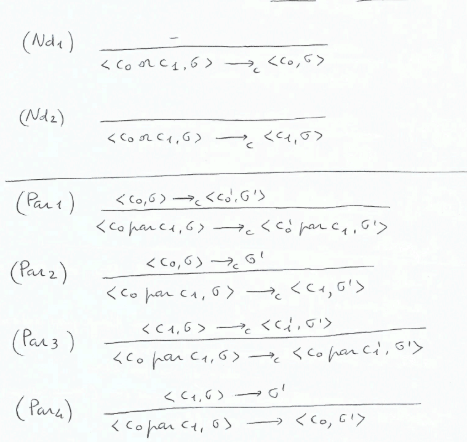 (Nd1) –
<c0 or c1, σ> →c <c0, σ>
(Nd2)
<c0 or c1, σ> →c <c1, σ>
(Par1) <c0, σ> →c <c0', σ'>
<c0 par c1, σ> →c <c0' par c1, σ'>
(Par2) <c0, σ> →c σ'
<c0 par c1, σ> →c <c1, σ'>
(Par3) <c1, σ> →c <c1', σ'>
<c0 par c1, σ> →c <c0 par c1', σ'>
(Par4) <c1, σ> → σ'
<c0 par c1, σ> → <c0, σ'>